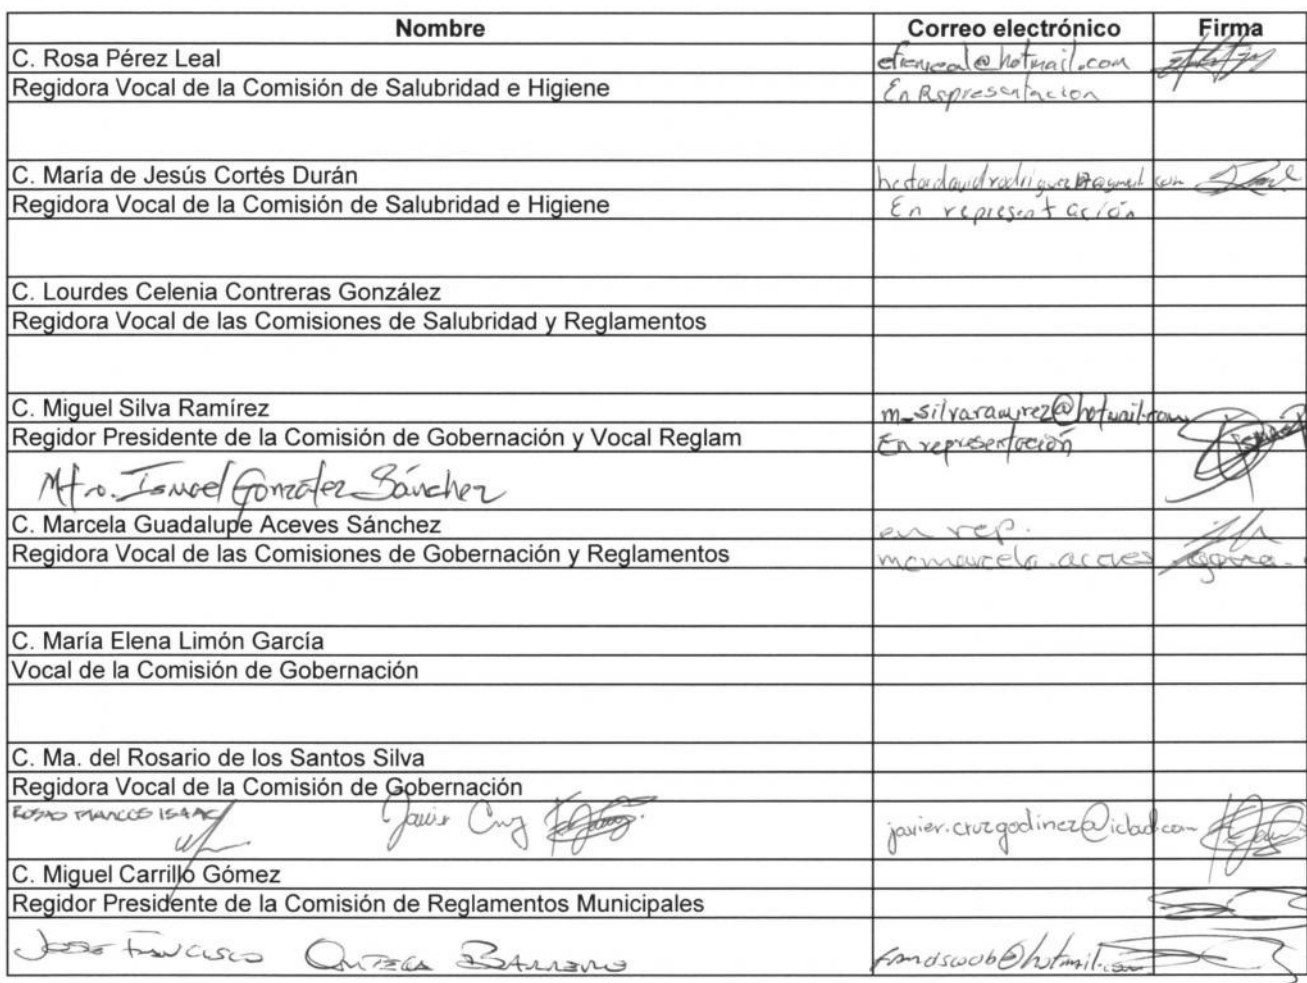 Nombre Correo electrónico Firma
C. Rosa Pérez Leal @hotmail.com
Regidora Vocal de la Comisión de Salubridad e Higiene En Representacion
C. María de Jesús Cortés Durán
Regidora Vocal de la Comisión de Salubridad e Higiene En representación
C. Lourdes Celenia Contreras González
Regidora Vocal de las Comisiones de Salubridad y Reglamentos
C. Miguel Silva Ramírez m_silvaramirez@hotmail.com
Regidor Presidente de la Comisión de Gobernación y Vocal Reglam En representación
Mtro. Ismael González Sánchez
C. Marcela Guadalupe Aceves Sánchez en rep.
Regidora Vocal de las Comisiones de Gobernación y Reglamentos
C. María Elena Limón García
Vocal de la Comisión de Gobernación
C. Ma. del Rosario de los Santos Silva
Regidora Vocal de la Comisión de Gobernación
MARCOS ISAAC Javier Cruz javier.cruzgodinez@icloud.com
C. Miguel Carrillo Gómez
Regidor Presidente de la Comisión de Reglamentos Municipales
JOSE FRANCISCO ORTEGA